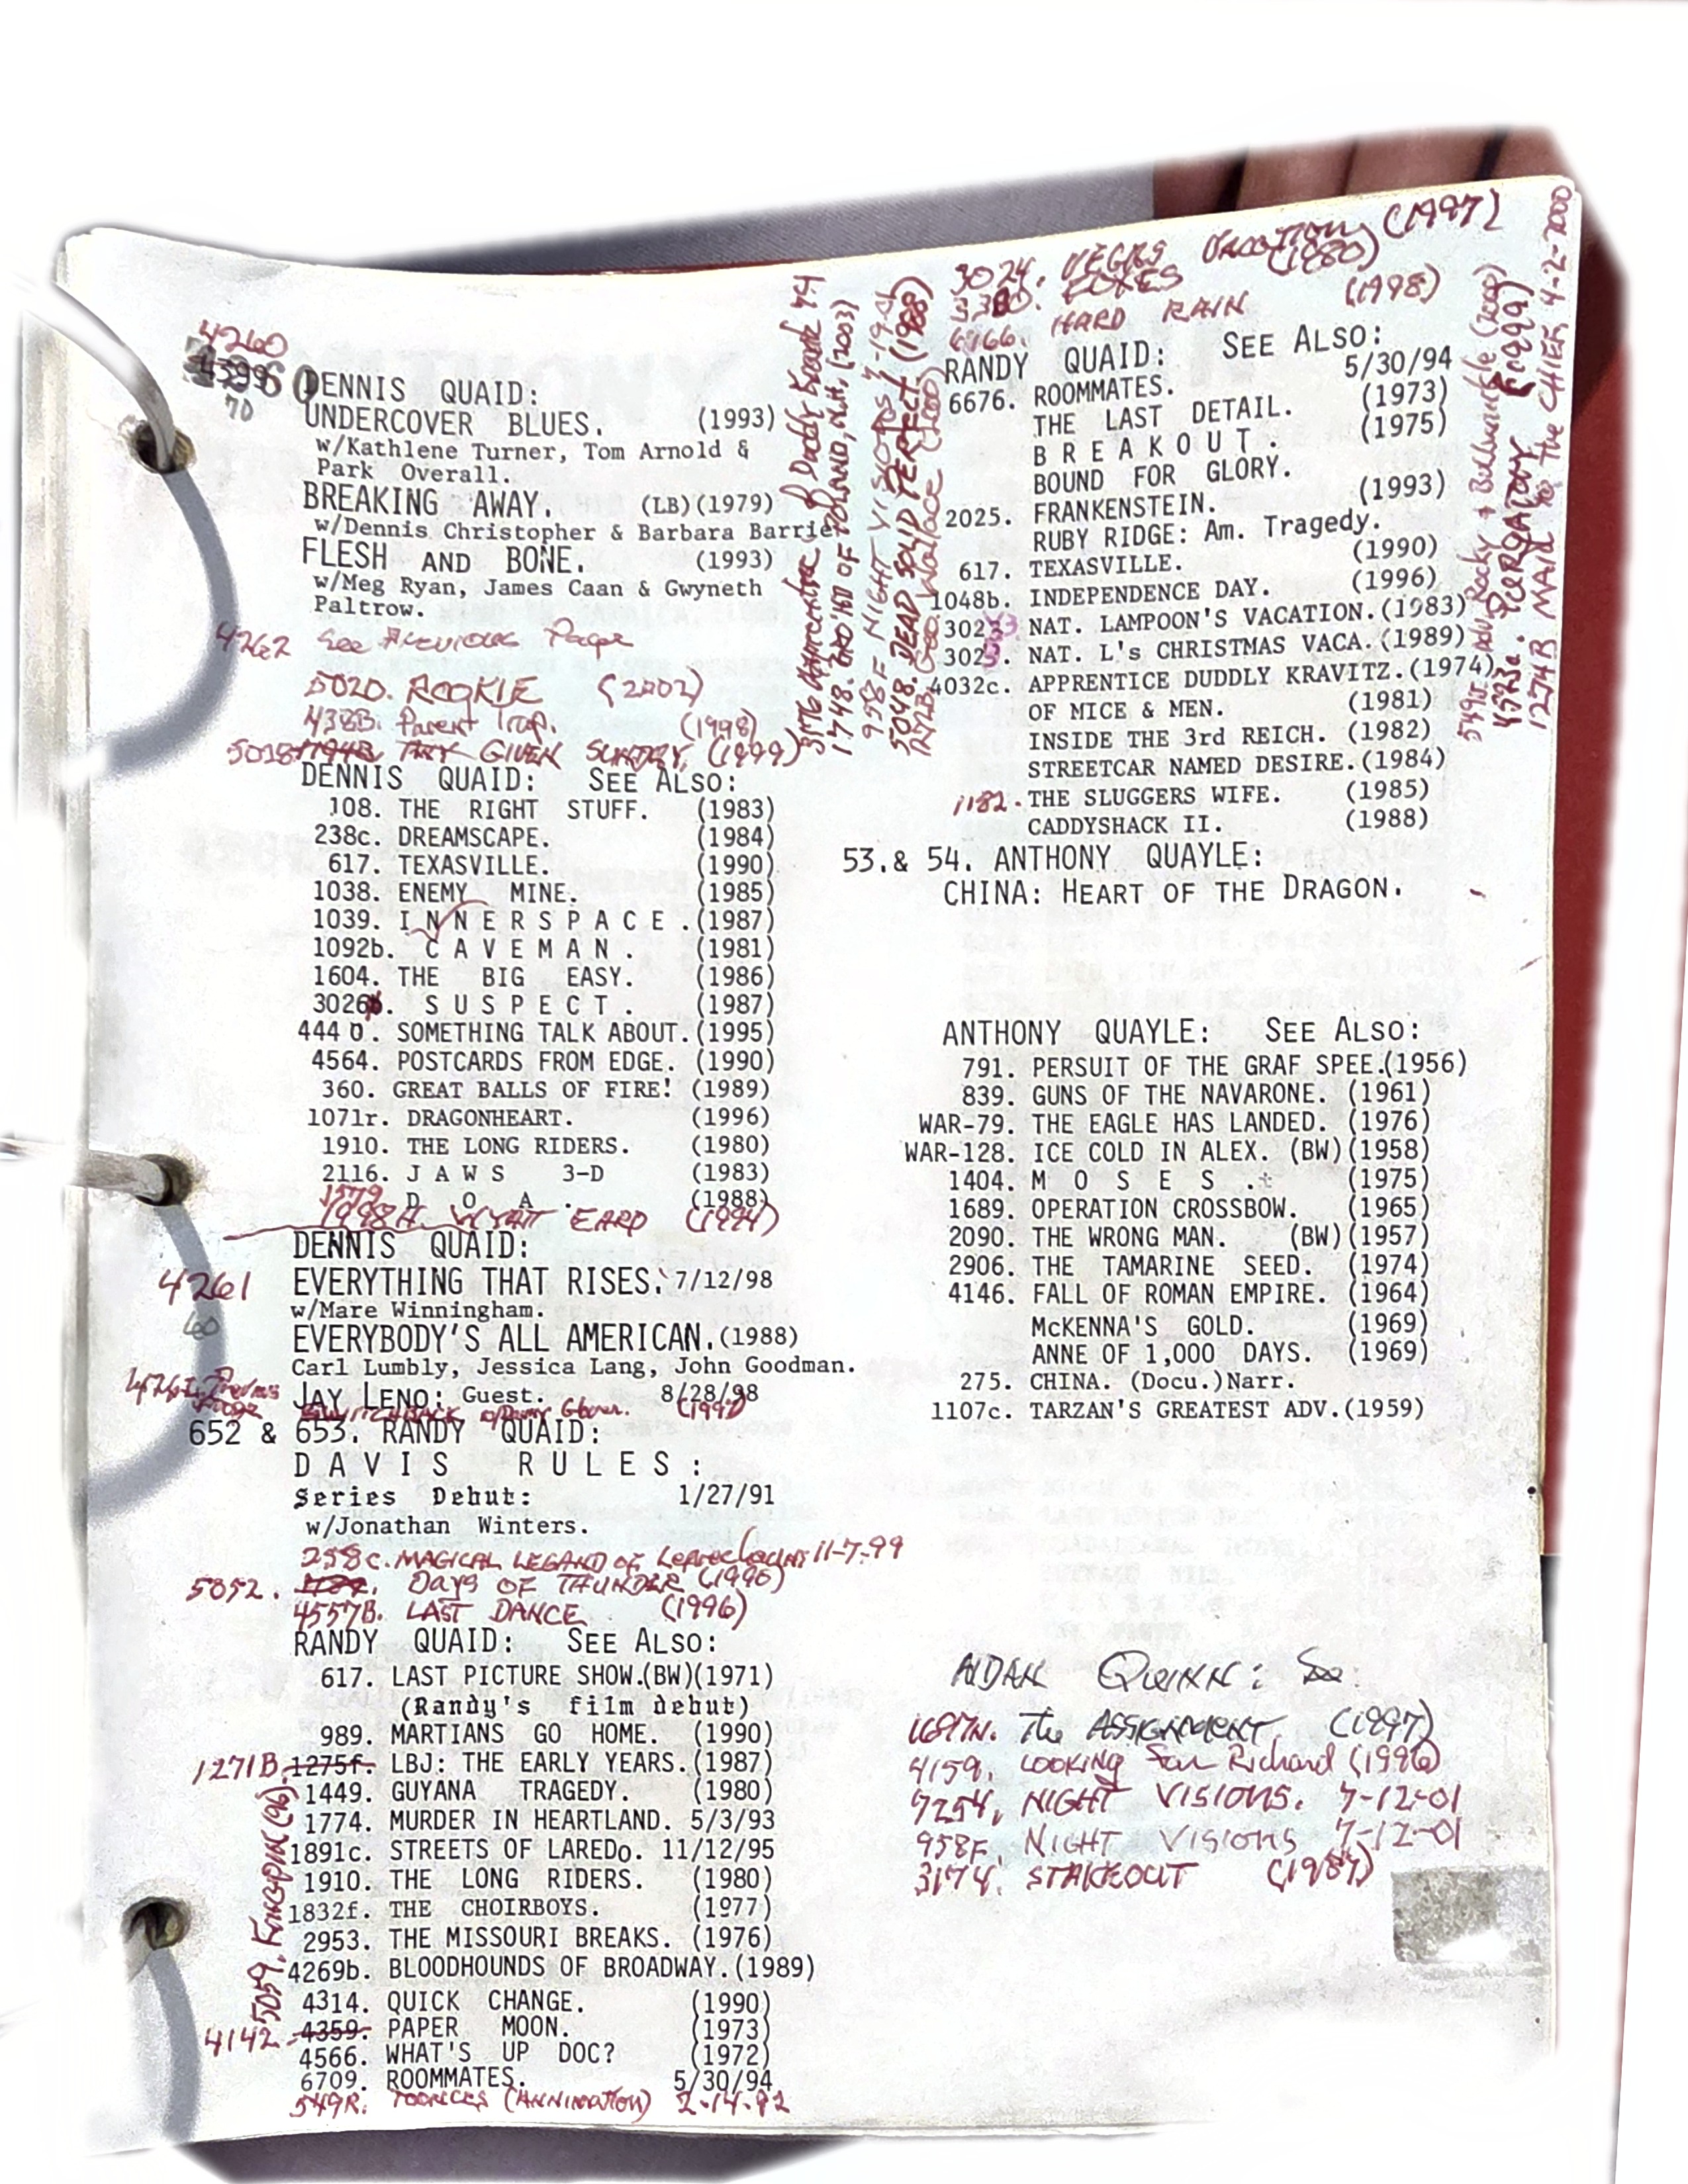 4260
4399
70
DENNIS QUAID:
UNDERCOVER BLUES. (1993)
w/Kathlene Turner, Tom Arnold &
Park Overall.
BREAKING AWAY. (LB)(1979)
w/Dennis Christopher & Barbara Barrie
FLESH AND BONE. (1993)
w/Meg Ryan, James Caan & Gwyneth
Paltrow.
4262 See Previous Page
5020. ROOKIE (2002)
438B. Parent Trap. (1998)
5018 1194B ANY GIVEN SUNDAY, (1999)
DENNIS QUAID: SEE ALSO:
108. THE RIGHT STUFF. (1983)
238c. DREAMSCAPE. (1984)
617. TEXASVILLE. (1990)
1038. ENEMY MINE. (1985)
1039. I N N E R S P A C E . (1987)
1092b. C A V E M A N . (1981)
1604. THE BIG EASY. (1986)
3026b. S U S P E C T . (1987)
444 0. SOMETHING TALK ABOUT. (1995)
4564. POSTCARDS FROM EDGE. (1990)
360. GREAT BALLS OF FIRE! (1989)
1071r. DRAGONHEART. (1996)
1910. THE LONG RIDERS. (1980)
2116. J A W S 3-D (1983)
1579 D O A . (1988)
1998A. WYATT EARP (1994)
DENNIS QUAID:
4261 EVERYTHING THAT RISES. 7/12/98
60
w/Mare Winningham.
EVERYBODY'S ALL AMERICAN. (1988)
Carl Lumbly, Jessica Lang, John Goodman.
Previous Page
JAY LENO: Guest. 8/28/98
SWITCHBACK w/Danny Glover. (1997)
652 & 653. RANDY QUAID:
D A V I S R U L E S :
Series Debut: 1/27/91
w/Jonathan Winters.
258c. MAGICAL LEGAND OF Leprechauns 11-7-99
5052. Days OF THUNDER (1990)
4557B. LAST DANCE (1996)
RANDY QUAID: SEE ALSO:
617. LAST PICTURE SHOW.(BW)(1971)
(Randy's film debut)
989. MARTIANS GO HOME. (1990)
1271B 1275f. LBJ: THE EARLY YEARS. (1987)
1449. GUYANA TRAGEDY. (1980)
1774. MURDER IN HEARTLAND. 5/3/93
1891c. STREETS OF LAREDo. 11/12/95
1910. THE LONG RIDERS. (1980)
1832f. THE CHOIRBOYS. (1977)
2953. THE MISSOURI BREAKS. (1976)
4269b. BLOODHOUNDS OF BROADWAY. (1989)
4314. QUICK CHANGE. (1990)
4142 4359. PAPER MOON. (1973)
4566. WHAT'S UP DOC? (1972)
6709. ROOMMATES. 5/30/94
549R. (ANNIMATION) 2-14-92
5059. KINGPIN (96)
3176 Apprentice of Duddy Kravitz 74
1748. GRD'HD OF POLAND, Nutt, (2003)
958F NIGHT VISIONS
5048. DEAD SOLID PERFECT (1988)
Geo. Wallace
3024. VEGAS VACATION (1997)
3380. FOXES (1980)
6166. HARD RAIN (1998)
RANDY QUAID: SEE ALSO:
6676. ROOMMATES. 5/30/94
THE LAST DETAIL. (1973)
B R E A K O U T . (1975)
BOUND FOR GLORY.
2025. FRANKENSTEIN. (1993)
RUBY RIDGE: Am. Tragedy.
617. TEXASVILLE. (1990)
1048b. INDEPENDENCE DAY. (1996)
3023 NAT. LAMPOON'S VACATION. (1983)
3025. NAT. L's CHRISTMAS VACA. (1989)
4032c. APPRENTICE DUDDLY KRAVITZ. (1974)
OF MICE & MEN. (1981)
INSIDE THE 3rd REICH. (1982)
STREETCAR NAMED DESIRE. (1984)
1182. THE SLUGGERS WIFE. (1985)
CADDYSHACK II. (1988)
549V. Adv. Rocky & Bullwinkle (2000)
4593a. PURGATORY (1999)
1274B MAID to The CHIEF 4-2-2000
53.& 54. ANTHONY QUAYLE:
CHINA: HEART OF THE DRAGON.
ANTHONY QUAYLE: SEE ALSO:
791. PERSUIT OF THE GRAF SPEE.(1956)
839. GUNS OF THE NAVARONE. (1961)
WAR-79. THE EAGLE HAS LANDED. (1976)
WAR-128. ICE COLD IN ALEX. (BW)(1958)
1404. M O S E S . (1975)
1689. OPERATION CROSSBOW. (1965)
2090. THE WRONG MAN. (BW)(1957)
2906. THE TAMARINE SEED. (1974)
4146. FALL OF ROMAN EMPIRE. (1964)
McKENNA'S GOLD. (1969)
ANNE OF 1,000 DAYS. (1969)
275. CHINA. (Docu.)Narr.
1107c. TARZAN'S GREATEST ADV.(1959)
AIDAN QUINN: See.
1687N. The ASSIGNMENT (1997)
4159. LOOKING For Richard (1996)
7254. NIGHT VISIONS. 7-12-01
958F. NIGHT VISIONS 7-12-01
3174. STAKEOUT (1987)